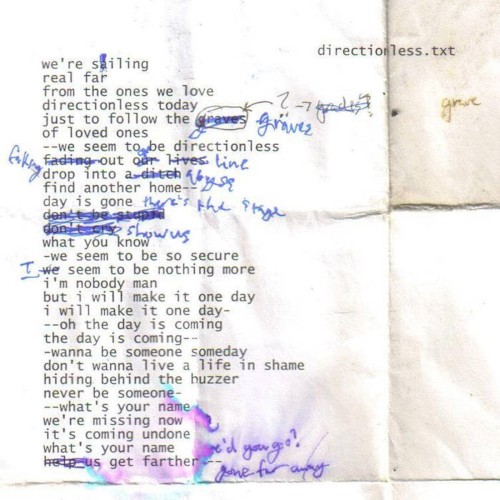 directionless.txt
we're sailing
real far
from the ones we love
directionless today
just to follow the graves ? graves
grave
of loved ones
--we seem to be directionless
falling fading out our lives line
drop into a ditch abyss
find another home--
day is gone there's the stage
don't be stupid
don't cry show us
what you know
-we seem to be so secure
I we seem to be nothing more
i'm nobody man
but i will make it one day
i will make it one day-
--oh the day is coming
the day is coming--
-wanna be someone someday
don't wanna live a life in shame
hiding behind the huzzer
never be someone-
--what's your name
we're missing now
it's coming undone
what's your name where'd you go?
help us get farther--
gone far away